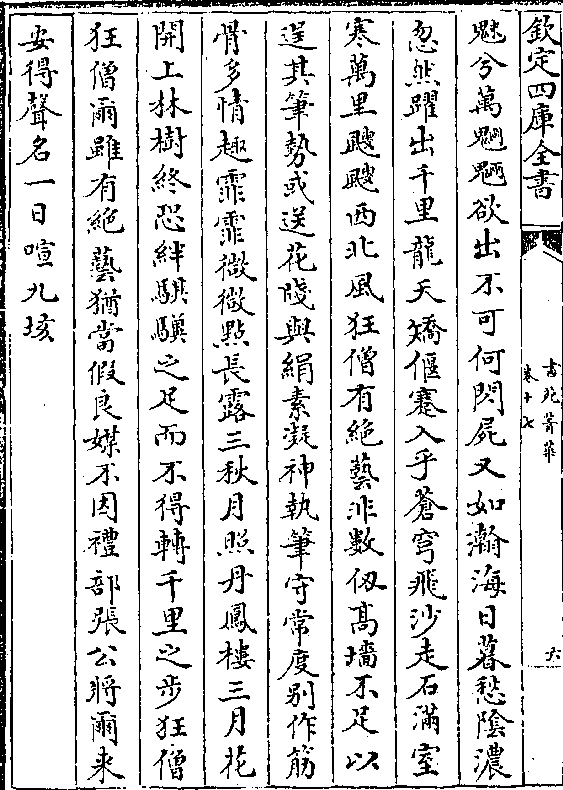 欽定四庫全書
書苑菁華
卷十七
六
魅兮萬魍魎欲出不可何閃屍又如瀚海日暮愁陰濃
忽然躍出千里龍夭矯偃蹇入乎蒼穹飛沙走石滿窮
寒萬里颼颼西北風狂僧有絶藝非數仭髙墻不足以
逞其筆勢或逢花牋與絹素凝神執筆守常度别作筋
骨多情趣霏霏微微點長露三秋月照丹鳳樓三月花
開上林樹終恐絆騏驥之足而不得轉千里之步狂僧
狂僧爾雖有絶藝猶當假良媒不因禮部張公將爾來
安得聲名一日喧九垓